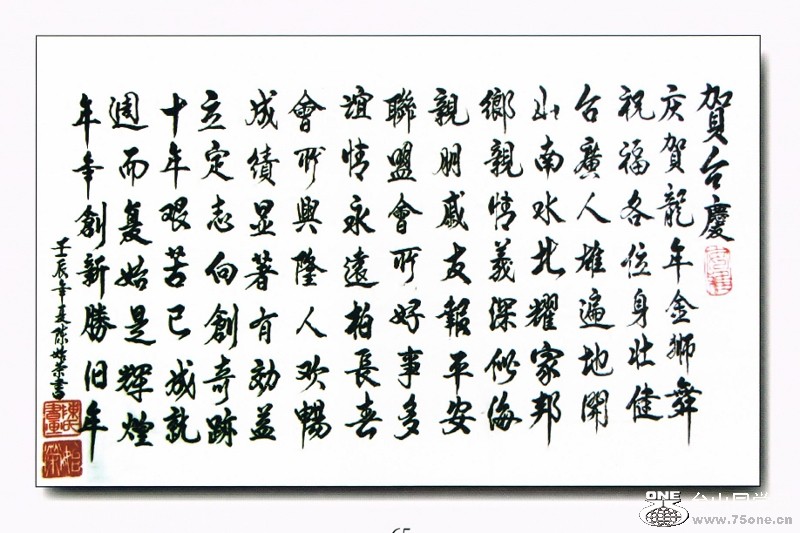 賀台慶
庆賀龍年金狮舞
祝福各位身壮健
台廣人雄遍地開
山南水北耀家邦
鄉親情義深似海
親朋戚友報平安
聯盟會所好事多
誼情永遠柏長春
會所興隆人欢暢
成績显著有効益
立定志向創奇跡
十年艰苦已成就
週而复始是輝煌
年年創新勝旧年
壬辰年夏陈婵荣書
65
ONE 台山同学
www.75one.cn